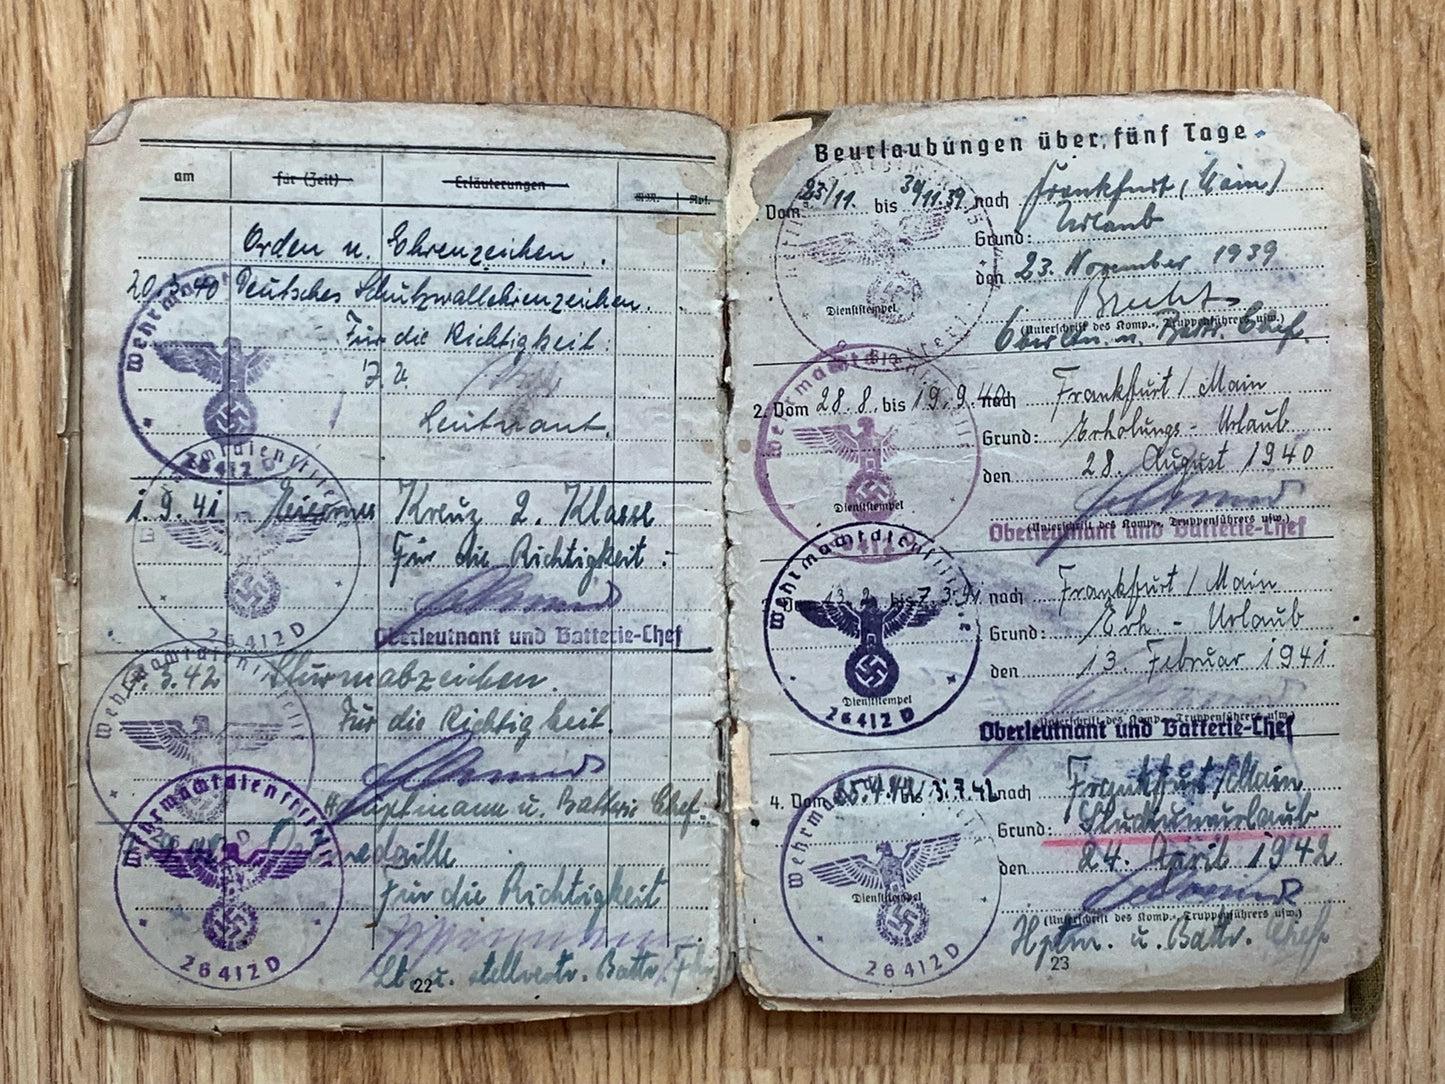 am für (Zeit) Erläuterungen RM. Rpf.
Orden u. Ehrenzeichen.
20.3.40 Deutsches Schutzwallehrenzeichen.
Für die Richtigkeit:
J. A.
Leutnant.
Wehrmacht
26412 D
1.9.41 Eisernes Kreuz 2. Klasse
Für die Richtigkeit:
Oberleutnant und Batterie-Chef
26412 D
3.42 Sturmabzeichen.
Für die Richtigkeit
Hauptmann u. Battr. Chef.
Wehrmachtdienststelle
Ostmedaille
Für die Richtigkeit
Lt. u. stellvertr. Battr. F
Wehrmachtdienststelle
26412 D
22
Beurlaubungen über fünf Tage
Vom 23/11. bis 30/11.39. nach Frankfurt (Main)
Grund: Urlaub
den 23. November 1939
Dienststempel
(Unterschrift des Komp.-, Truppenführers usw.)
Oberltn. u. Battr. Chef.
2. Vom 28.8. bis 19.9.40 nach Frankfurt/Main
Grund: Erholungs-Urlaub
den 28. August 1940
Dienststempel
(Unterschrift des Komp.-, Truppenführers usw.)
Oberleutnant und Batterie-Chef
Wehrmachtdienststelle
Vom 13.2. bis 7.3.41 nach Frankfurt/Main
Grund: Erh.-Urlaub
den 13. Februar 1941
Dienststempel
(Unterschrift des Komp.-, Truppenführers usw.)
Oberleutnant und Batterie-Chef
Wehrmachtdienststelle
26412 D
4. Vom bis 3.7.42 nach Frankfurt/Main
Grund: Studienurlaub
den 24. April 1942
Dienststempel
(Unterschrift des Komp.-, Truppenführers usw.)
Hptm. u. Battr. Chef
Wehrmachtdienststelle
26412 D
23